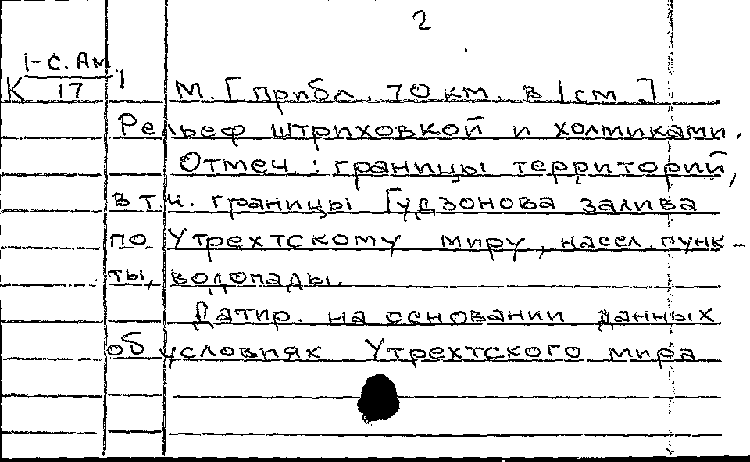 2
1-С. Ам.
К 17
М. [прибл. 70 км. в 1 см.]
Рельеф штриховкой и холмиками.
Отмеч.: границы территорий,
в т.ч. границы Гудзонова залива
по Утрехтскому миру, насел. пунк-
ты, водопады.
Датир. на основании данных
об условиях Утрехтского мира